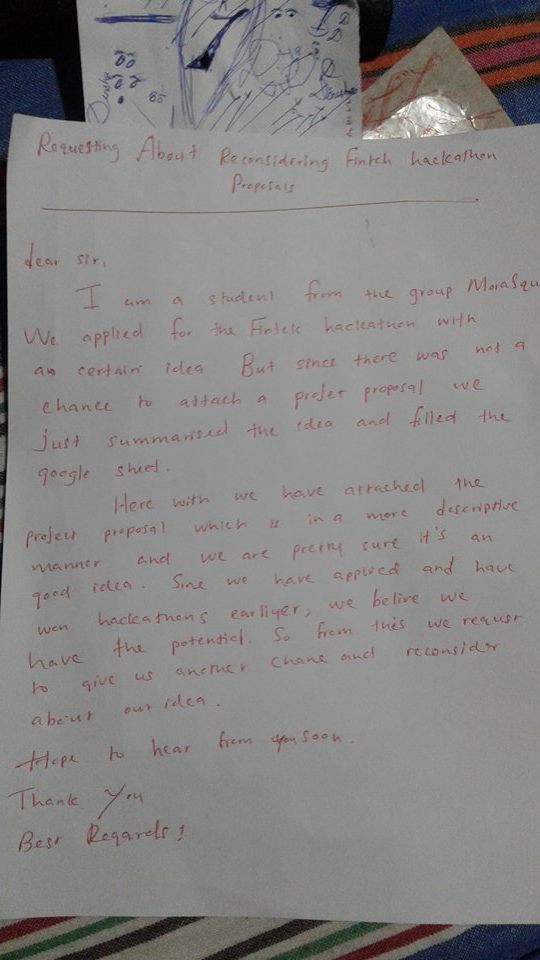 Requesting About Reconsidering Fintch hackathon
Proposals
dear sir,
I am a student from the group MoraSqu
We applied for the Fintek hackeathon with
an certain idea But since there was not a
chance to attach a projet proposal we
just summarised the idea and filled the
google sheet.
Here with we have attached the
project proposal which is in a more descriptive
manner and we are pretty sure it's an
good idea. Sine we have applied and have
won hackathons earliyer, we belive we
have the potential. So from this we requst
to give us another chane and reconsider
about our idea.
Hope to hear from you soon.
Thank You
Best Regards!